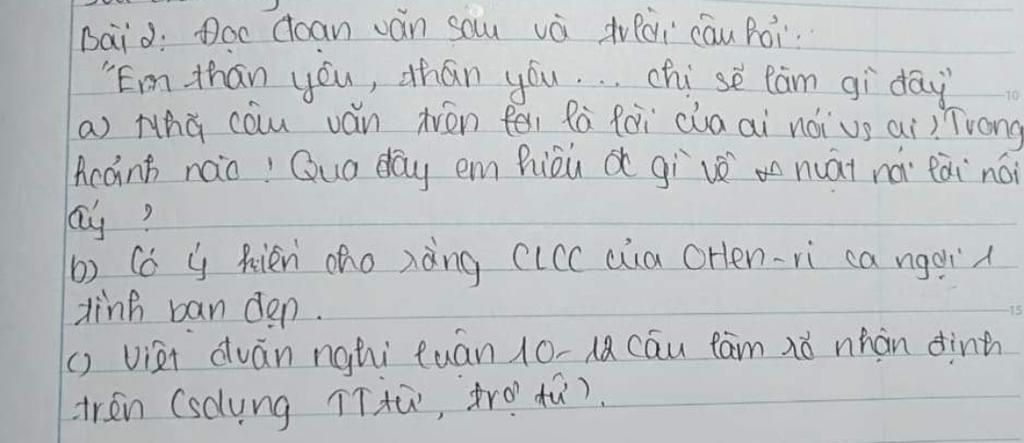 Bài 2: Đọc đoạn văn sau và trả lời câu hỏi:
"Em thân yêu, thân yêu... chị sẽ làm gì đây"
a) Những câu văn trên là lời của ai nói vs ai? Trong
hcảnh nào? Qua đây em hiểu đc gì về nvật nói lời nói
ấy?
b) Có ý kiến cho rằng CLCC của OHen-ri ca ngợi 1
tình bạn đẹp.
c) Viết đvăn nghị luận 10-12 câu làm rõ nhận định
trên (sdụng TTtừ, trợ từ).
10
15